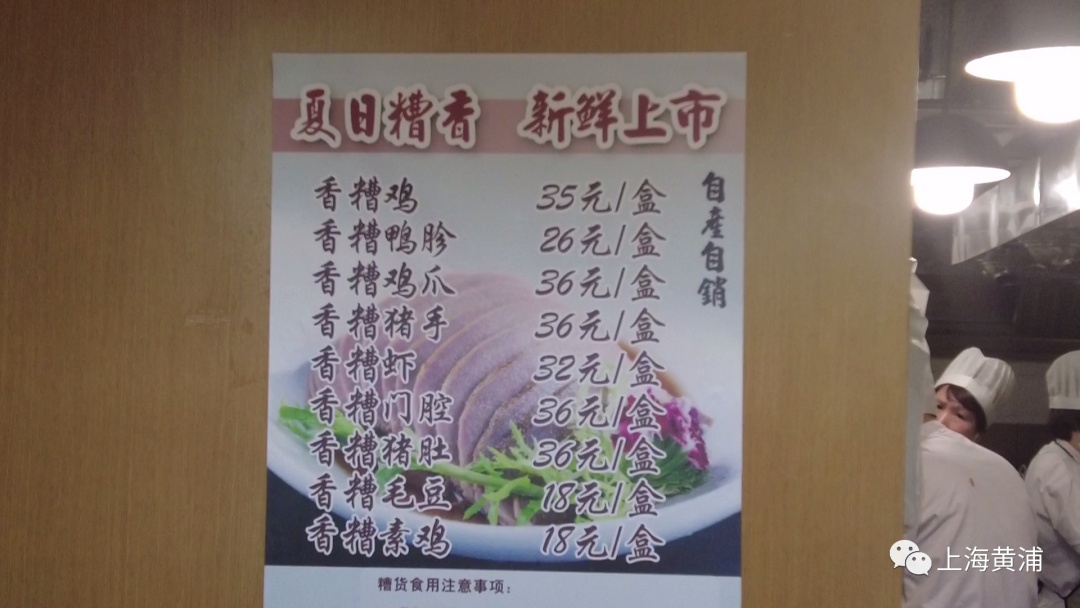 夏日糟香 新鲜上市
自產自銷
香糟鸡 35元/盒
香糟鸭胗 26元/盒
香糟鸡爪 36元/盒
香糟猪手 36元/盒
香糟虾 32元/盒
香糟门腔 36元/盒
香糟猪肚 36元/盒
香糟毛豆 18元/盒
香糟素鸡 18元/盒
糟货食用注意事项：
上海黄浦